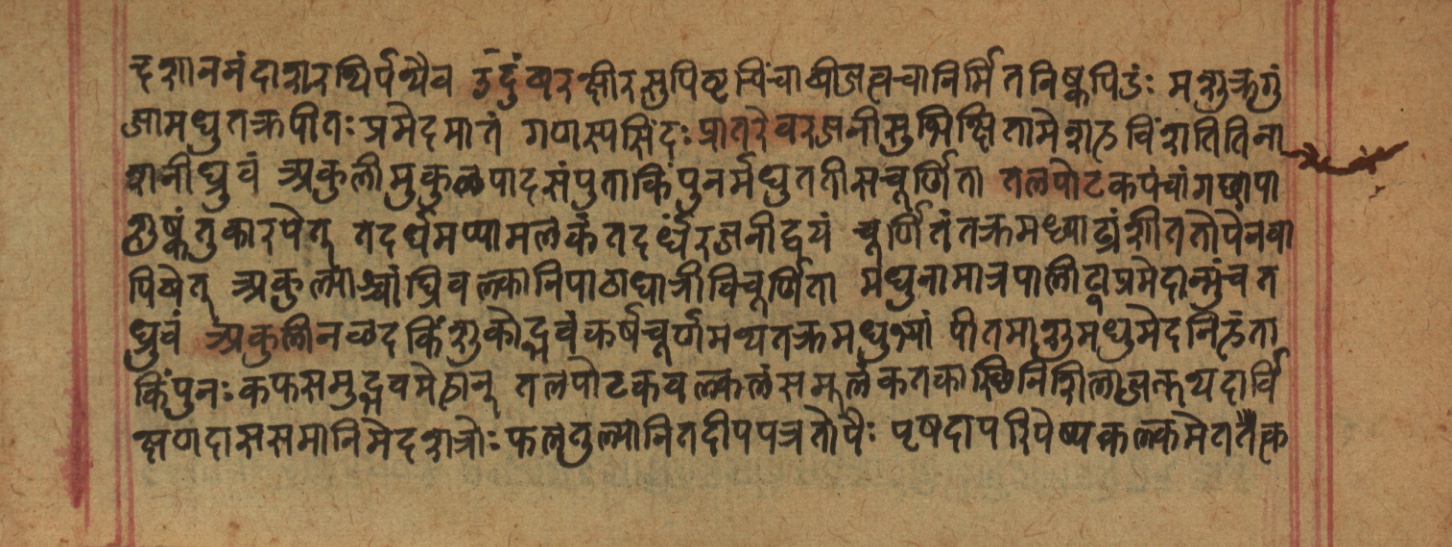 दशाननंदाशरथिर्पथैव उदुंबरक्षीरसुपिष्टचिंचाबीजत्वचानिर्मितनिष्कपिडंः मशुक्रगुं
जामधुतक्रपीतः प्रमेदमातं गणस्पसिंदः प्रातरेवरजनीसुभिक्षितामेशठविंशतितिना
शनीध्रुवं अकुलीमुकुळपादसंपुताकिंपुनर्मधुततीसचूर्णिता तलपोटकपंचांगछापा
शुष्कंतुकारपेत् तदर्धमप्पामलकंतदर्धंरजनीद्वयं चूर्णितंतक्रमध्वाद्यंशीततोपेनवा
पिबेत् अकुल्पाश्चांघ्रिवल्कानिपाठाधात्रीविचूर्णिता मधुनामात्रपालीढाप्रमेदान्मुंचत
ध्रुवं अकुलीनळदकिंशुकोद्भवंकर्षचूर्णमथतक्रमधुभ्यां पीतमाशुमधुमेदनिहंता
किंपुनः कफसमुद्भवमेहान् तलपोटकवल्कलंसमूलंकतकास्थिनिशिलाजत्तथदार्वि
क्षणदाससमानिमेदशत्रोः फलतुल्पानितदीपपत्रतोपैः पृषदापरिपेष्यकल्कमेतत्तैक